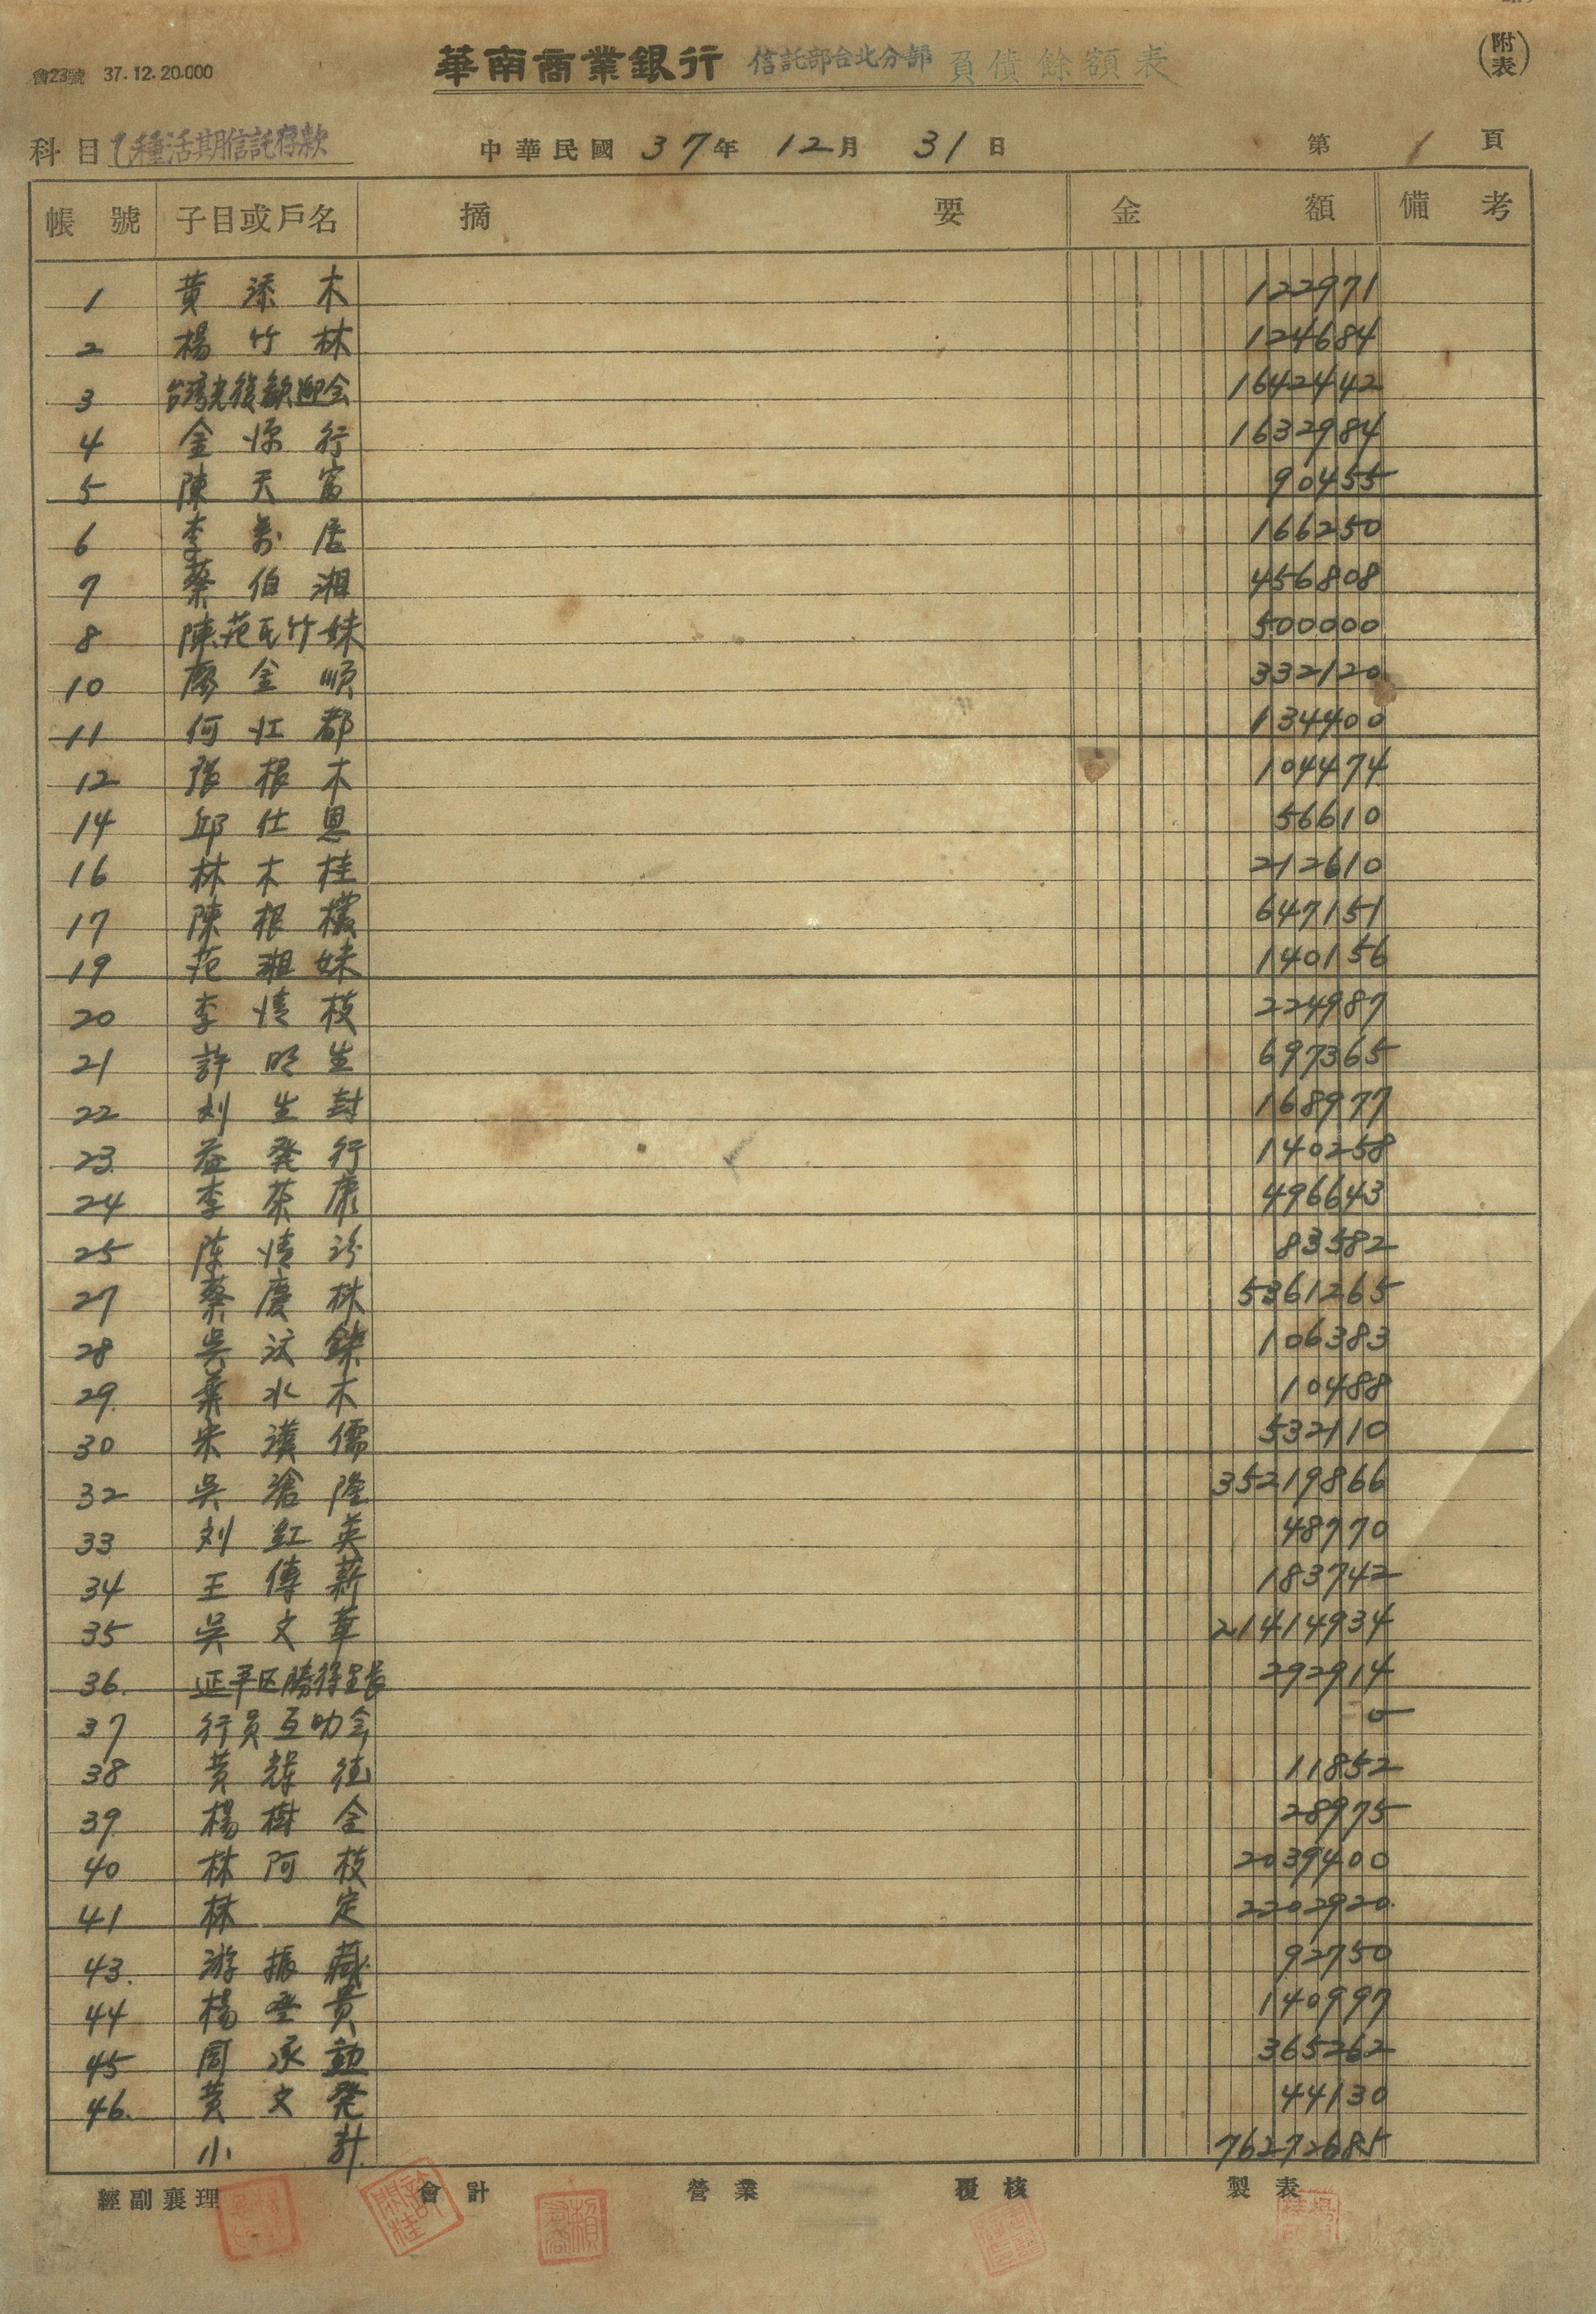 會23號 37.12.20.000
華南商業銀行 信託部台北分部 負債餘額表 (附表)
科目 乙種活期信託存款 中華民國 37年 12月 31日 第 1 頁
帳號 子目或戶名 摘要 金額 備考
1 黃添木 122971
2 楊竹林 124684
3 台湾光復歡迎会 1642442
4 金源行 1632984
5 陳天富 90455
6 李萬居 166250
7 蔡伯湘 456808
8 陳范氏竹妹 500000
10 廖金順 332120
11 何江都 134400
12 張根木 104474
14 邱仕恩 56610
16 林木桂 212610
17 陳根 647151
19 范湘妹 140156
20 李清枝 224987
21 許明生 697365
22 刘生封 168977
23 益発行 140258
24 李荣康 496643
25 陈清汾 83582
27 蔡慶林 5361265
28 吳 106383
29 葉水木 10488
30 宋漢儒 532110
32 吳滄隆 35219866
33 刘紅英 48770
34 王傳薪 183742
35 吳文華 21414934
36 延平区勝得里長 292914
37 行員互助会 0
38 黃 11852
39 楊樹金 28975
40 林阿枝 2039400
41 林定 2202920
43 游振藏 92750
44 楊登貴 140997
45 周承勳 365262
46 黃文発 44130
小計 76272685
經副襄理 會計 營業 覆核 製表